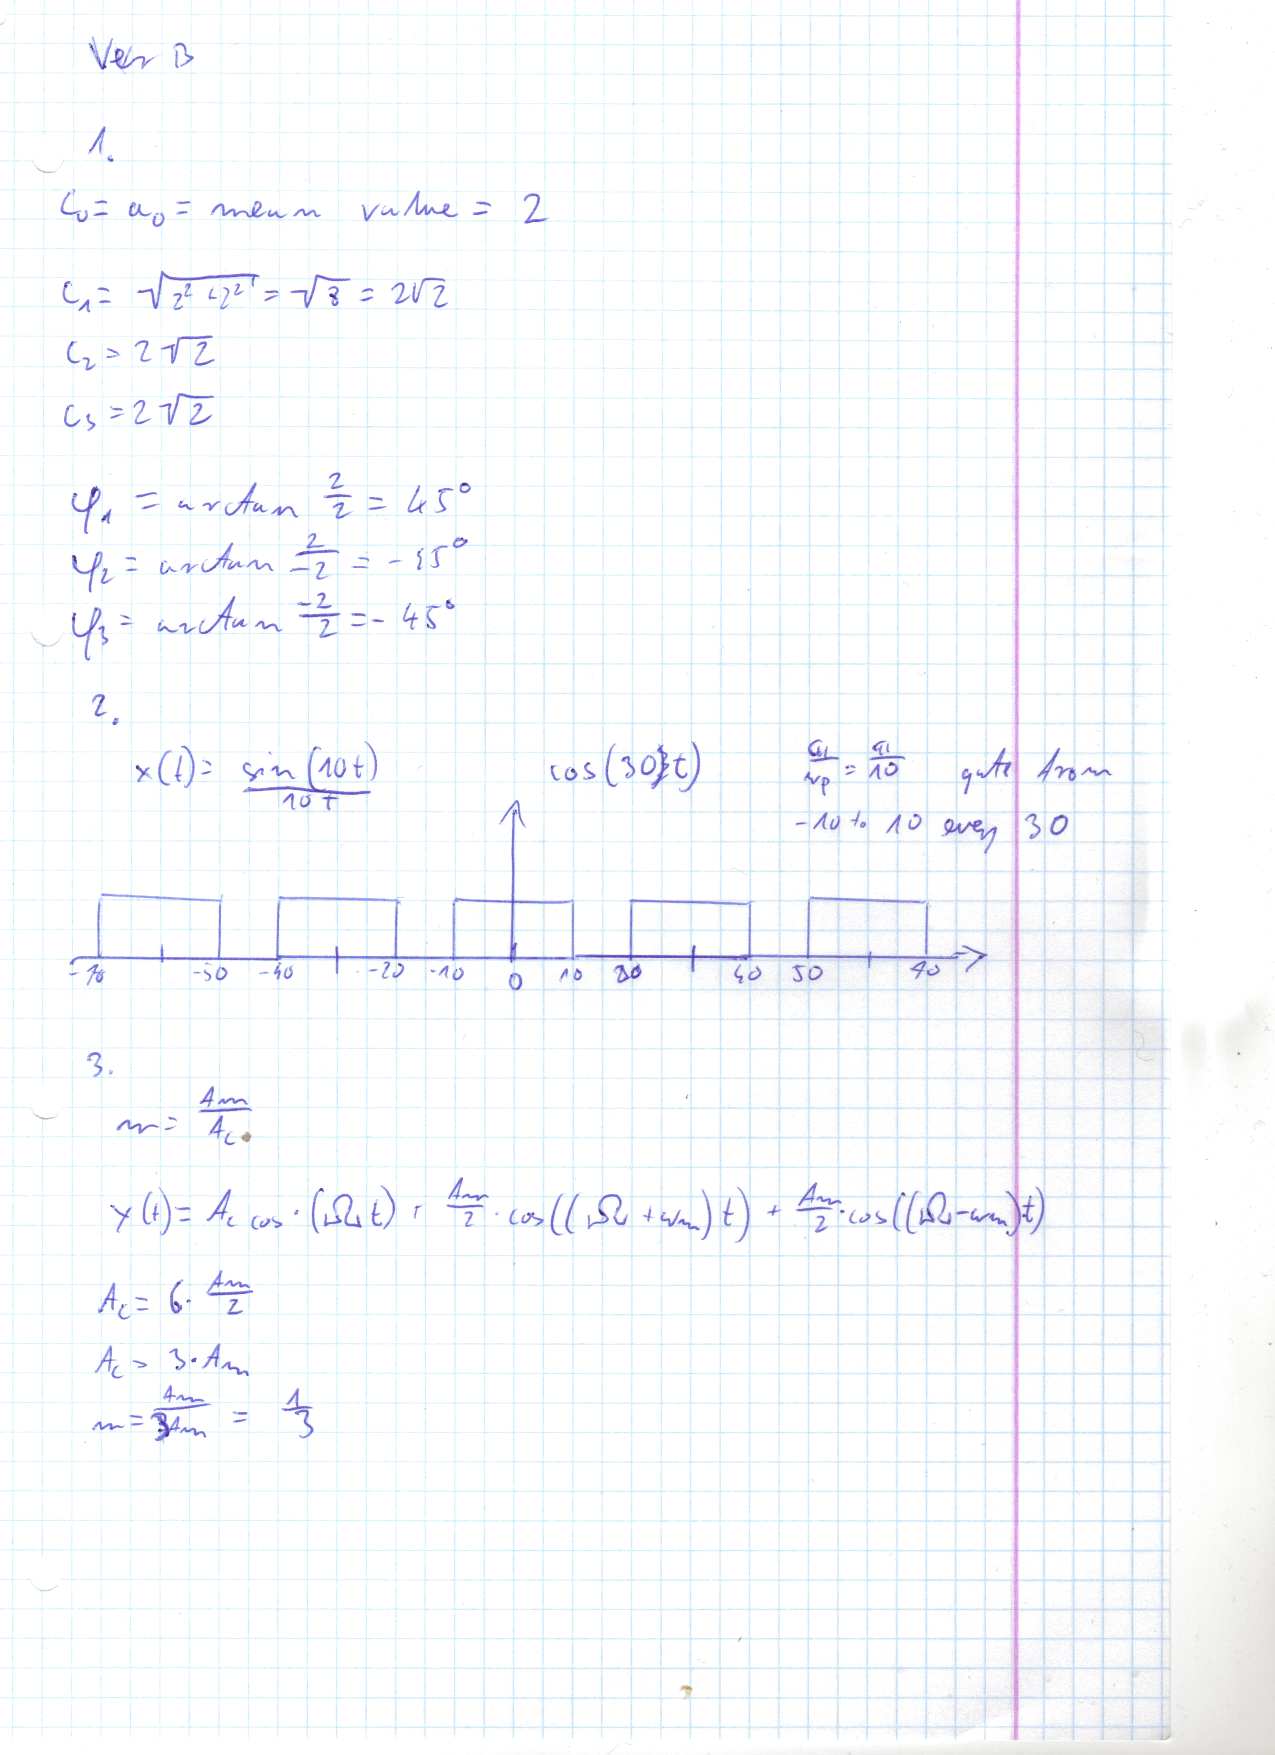 Ver B
1.
C₀ = a₀ = mean value = 2
C₁ = √(2² + 2²) = √8 = 2√2
C₂ = 2√2
C₃ = 2√2
φ₁ = arctan 2/2 = 45°
φ₂ = arctan 2/-2 = -45°
φ₃ = arctan -2/2 = - 45°
2.
x(t) = sin(10t)/10t cos(30t) π/wp = π/10 gate from
-10 to 10 every 30
-70 -50 -40 -20 -10 0 10 20 40 50 70
3.
m = Am/Ac
y(t) = Ac cos·(Ωt) + Am/2 · cos((Ω + ωm)t) + Am/2 · cos((Ω - ωm)t)
Ac = 6 · Am/2
Ac = 3 · Am
m = Am/3Am = 1/3